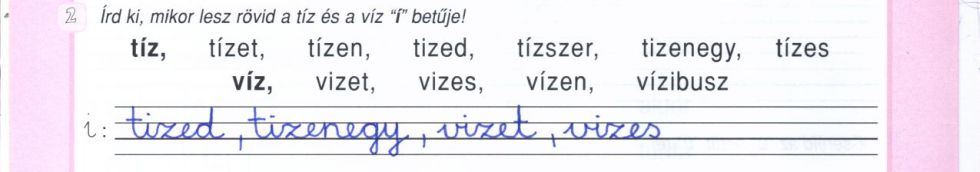 2 Írd ki, mikor lesz rövid a tíz és a víz "í" betűje!
tíz, tízet, tízen, tized, tízszer, tizenegy, tízes
víz, vizet, vizes, vízen, vízibusz
i: tized, tizenegy, vizet, vizes